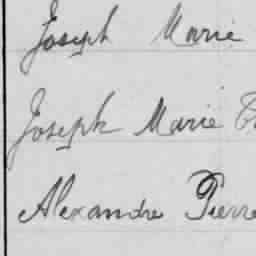 Joseph Marie
Joseph Marie
Alexandre Pierre